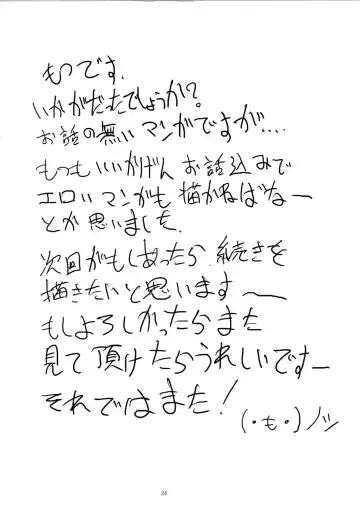 もつです。
いかがだったでしょうか?
お話の無いマンガですが....
もつもいいかげん お話込みで
エロいマンガも描かねばなー
とか思いました。
次回がもしあったら 続きを
描きたいと思います〜
もしよろしかったらまた
見て頂けたらうれしいですー
それではまた!
(・も・)ノシ
26